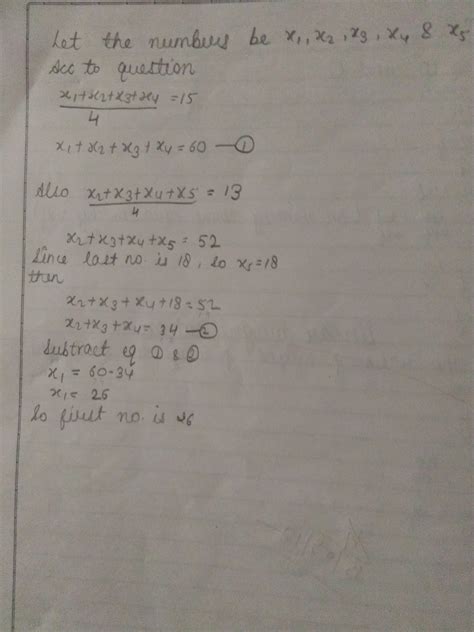 Let the numbers be x₁, x₂, x₃, x₄ & x₅
Acc to question
x₁+x₂+x₃+x₄ = 15
4
x₁+x₂+x₃+x₄ = 60 — ①
Also x₂+x₃+x₄+x₅ = 13
4
x₂+x₃+x₄+x₅ = 52
Since last no. is 18, so x₅=18
then
x₂+x₃+x₄+18=52
x₂+x₃+x₄= 34 — ②
Subtract eq ① & ②
x₁ = 60-34
x₁= 26
So first no. is 26